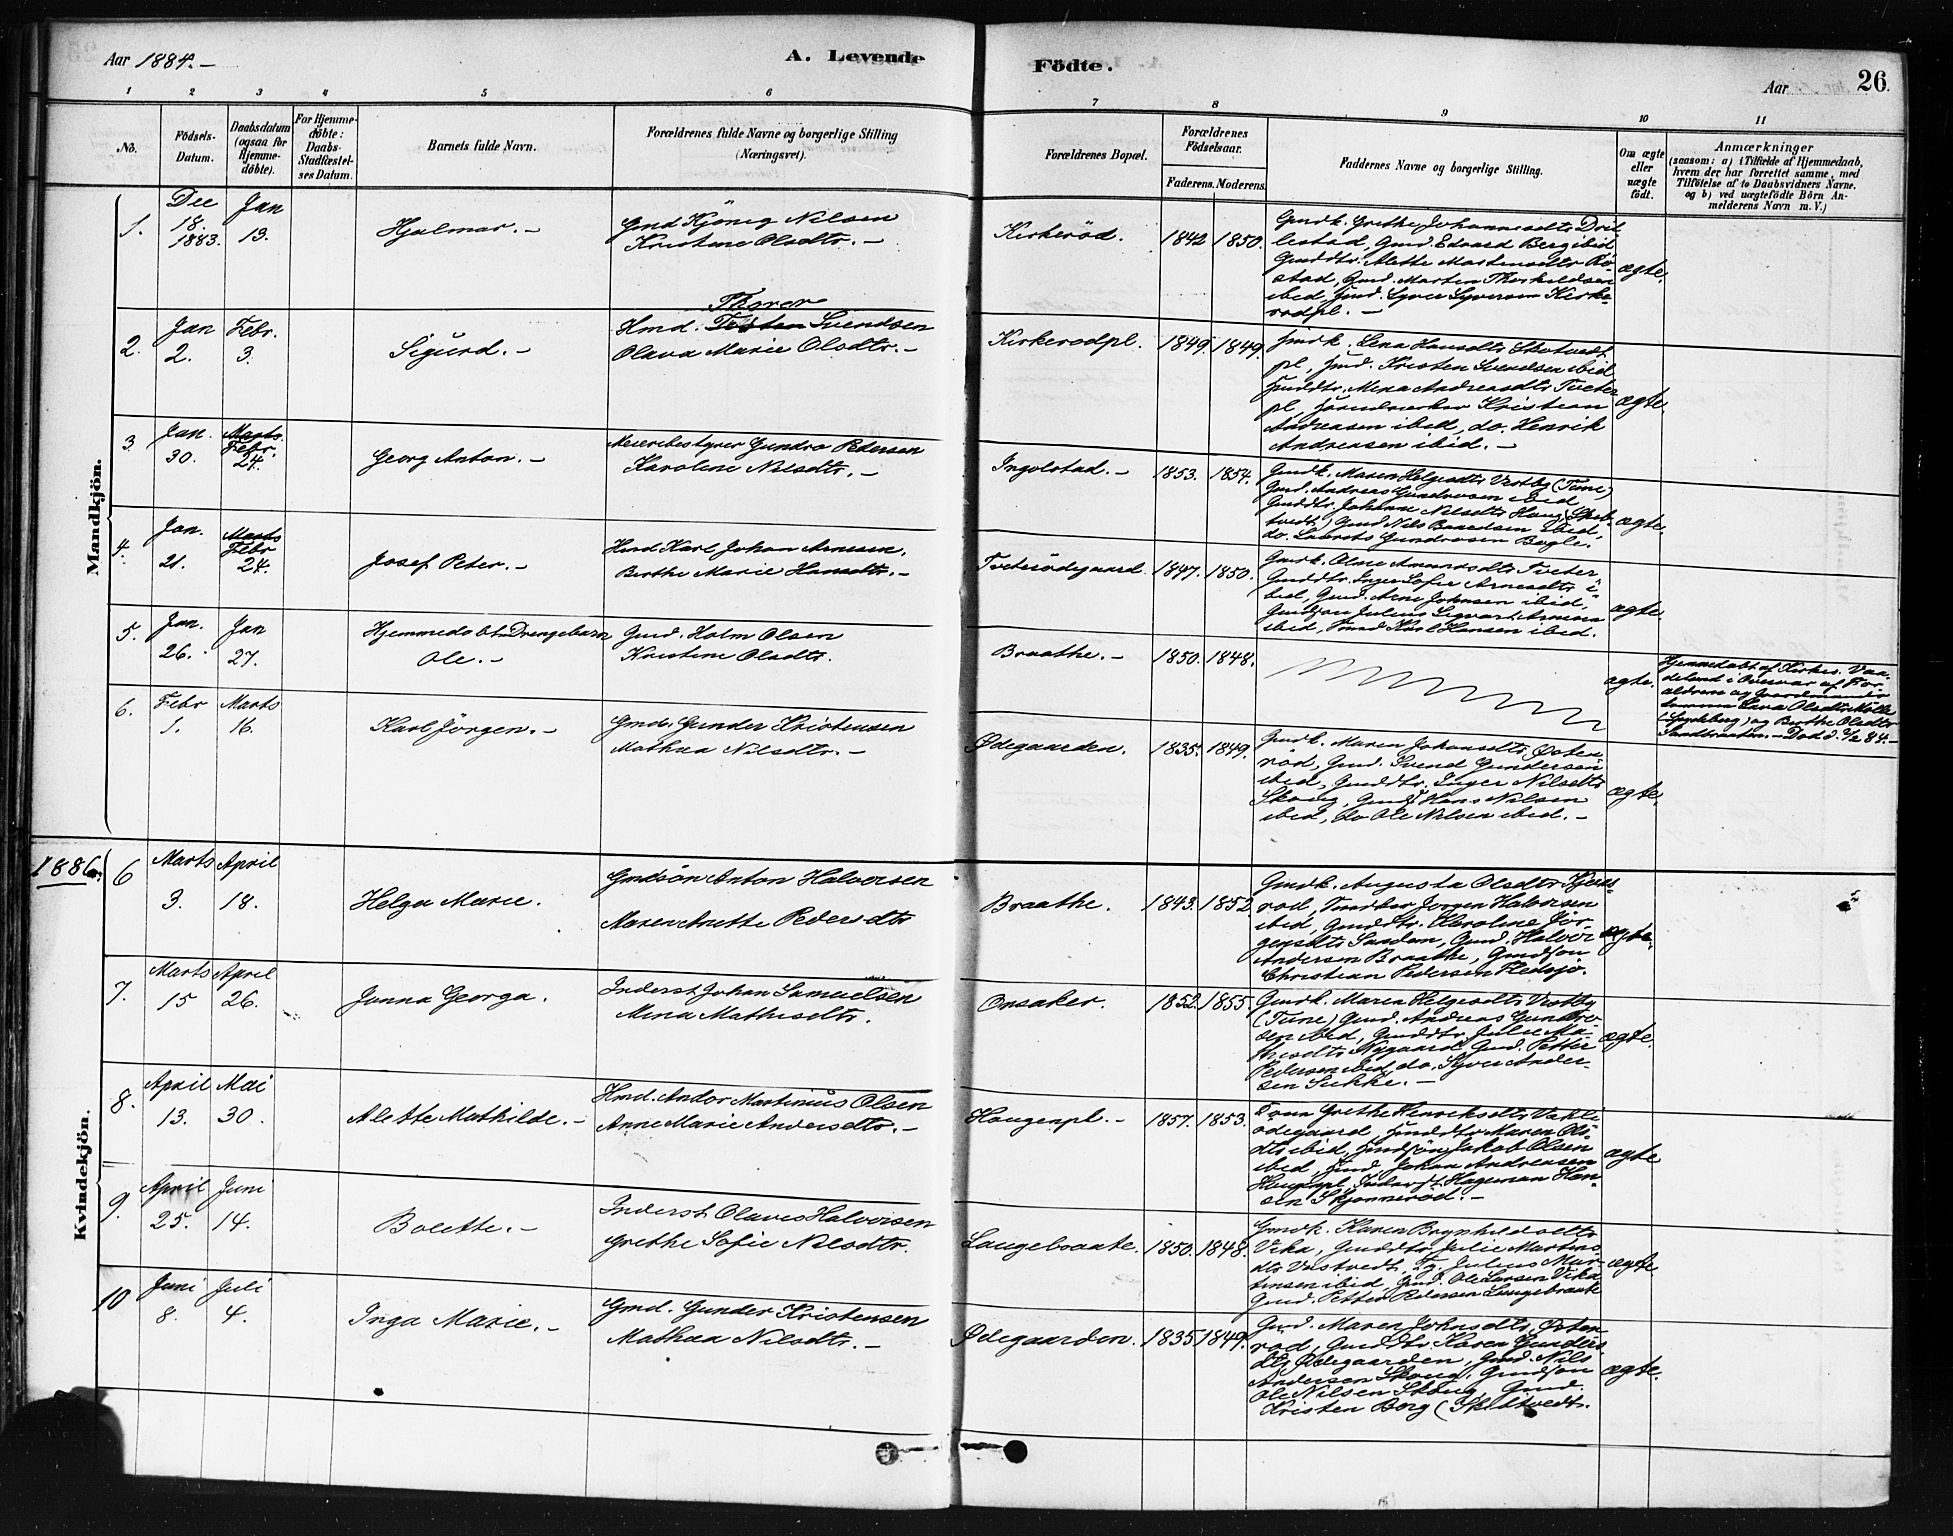 Aar 1884.-
A. Levende
Födte.
Aar
26.
1 2 3 4 5 6 7 8 9 10 11
No.
Födsels-
Datum.
Daabsdatum
(ogsaa for
Hjemme-
döbte).
For Hjemme-
döbte:
Daabs-
Stadfæstel-
ses Datum.
Barnets fulde Navn.
Forældrenes fulde Navne og borgerlige Stilling
(Næringsvei).
Forældrenes Bopæl.
Forældrenes
Födselsaar.
Faderens. Moderens.
Faddernes Navne og borgerlige Stilling.
Om ægte
eller
uægte
födt.
Anmærkninger
(saasom: a) i Tilfælde af Hjemmedaab,
hvem der har forrettet samme, med
Tilföielse af to Daabsvidners Navne.
og b) ved uægtefödte Börn An-
melderens Navn m. V.)
Mandkjön.
1.
Dec
18.
1883.
Jan
13.
Hjalmar.-
Gmd Kjönig Nilsen
Kristine Olsdtr.-
Kirkeröd.
1842 1850.
Gmdk. Grethe Johannesdtr Dril-
lestad, Gmd. Edvard Berg ibid
Gmddtr. Alette Mortensdtr Rö-
stad, Gmd. Morten Thorkildsen
ibid, Hmd. Syver Syversen Kirke-
rödpl.-
ægte.
2.
Jan
2.
Febr.
3.
Sigurd.-
Thorer
Hmd. Svendsen
Olava Marie Olsdtr.-
Kirkerodpl.
1849. 1849.
Hmdk. Lena Hansdtr Skotvedt
pl, Hmd. Kristen Svendsen ibid
Hmddtr. Mina Andreasdtr Tveter
pl, Kristian
Andreasen ibid, do. Henrik
Andreasen ibid.-
ægte.
3
Jan.
30.
Marts
Febr.
24.
Georg Anton.-
Meieribestyrer Gundro Petersen
Karoline Nilsdtr.-
Ingolstad.-
1853. 1854.
Gmdk. Maren Helgesdtr Vestby (Tune)
Gmd. Andreas Gundrosen ibid,
Gmddtr. Johanne Nilsdtr Haug (Skib-
tvedt) Gmd Nils Baardsen ibid,
do. Laurets Gundrosen Bøgle.
ægte.
4.
Jan.
21.
Marts
Febr
24.
Josef Peter.-
Hmd Karl Johan Arnesen.
Berthe Marie Hansdtr.-
Tveterödegaard.
1847. 1850.
Gmdk. Oline Amundsdtr Tveter
Gmddtr. Inger Sofie Arnesdtr i-
bid, Gmd. Arne Johnsen ibid,
Gmdsön Julius Sigvart Arnesen
ibid, Karl Hansen ibid.
ægte.
5.
Jan.
26.
Jan
27.
Hjemmedöbt Drengebarn
Ole.-
Gmd. Holm Olsen
Kristine Olsdtr.
Braathe.-
1850. 1848.
ægte.
Hjemmedöbt af Kirkes.
i Overvær af For-
ældrene og
Olsdtr Mölle
(Spydeberg) og Berthe Olsdtr
- Död d. 3/2 84.-
6.
Febr
1.
Marts
16.
Karl Jörgen.-
Gmd. Gunder Kristensen
Mathea Nilsdtr.-
Ødegaarden.
1835. 1849.
Gmdk. Maren Johnsdtr Østen-
röd, Gmd. Svend Gundersen
ibid, Gmddtr. Inger Nilsdtr
Skoug, Gmds Hans Nilsen
ibid, do Ole Nilsen ibid.-
ægte.
1886.
Kvindekjön.
6
Marts
3.
April
18.
Helga Marie.
Gmdsön Anton Halvorsen
Maren Anette Pedersdtr
Braathe.
1843. 1852
Gmdk. Augusta Olsdtr
röd, Jörgen Halvorsen
ibid, Gmddtr. Karoline Jör-
gensdtr Sandem, Gmd. Halvor
Andersen Braathe, Gmdsön
Christian Pedersen Hedsjö.
ægte.
7.
Marts
15
April
26.
Janna Georga.
Inderst Johan Samuelsen
Mina Mathisdtr.
Onsaker.
1852. 1855.
Gmdk. Maren Helgesdtr Vestby
(Tune) Gmd. Andreas Gundro-
sen ibid, Gmddtr Julie Ma-
thisdtr Nygaard, Gmd. Petter
Pedersen ibid, do. Syver Ander-
sen Sukke.-
ægte.
8.
April
13.
Mai
30.
Alette Mathilde.-
Hmd. Andor Martinius Olsen
Anne Marie Andersdtr.-
Haugenpl.-
1857. 1853.
Grethe Henriksdtr
ödegaard, Hmddtr Maren Ols-
dtr ibid, Jakob Olsen
ibid, Hmd. Johan Andreasen
Haugenpl, Inderst Hageman Han-
sen Skjonneröd.-
ægte
9.
April
25.
Juni
14.
Bolette.-
Inderst Olaves Halvorsen
Grethe Sofie Nilsdtr.
Langebraate.
1850. 1848.
Gmdk. Karen Brynhildsdtr
Vika, Gmddtr Julie Martins-
dtr Vestvedt, Tg. Julius Mar-
tinsen ibid, Gmd. Ole Larsen Vika
Gmd. Petter Pedersen Langebraate
ægte.
10
Juni
8.
Juli
4.
Inga Marie.-
Gmd. Gunder Kristensen
Mathea Nilsdtr.-
Ødegaarden.
1835 1849.
Gmd. Maren Johnsdtr Østen-
röd, Gmddtr Karen Gunders-
dtr Ødegaarden, Gmd. Nils
Andersen Skoug, Gmdsön
Ole Nilsen Skoug, Gmd.
Kristen Berg (Skibtvedt.
ægte.